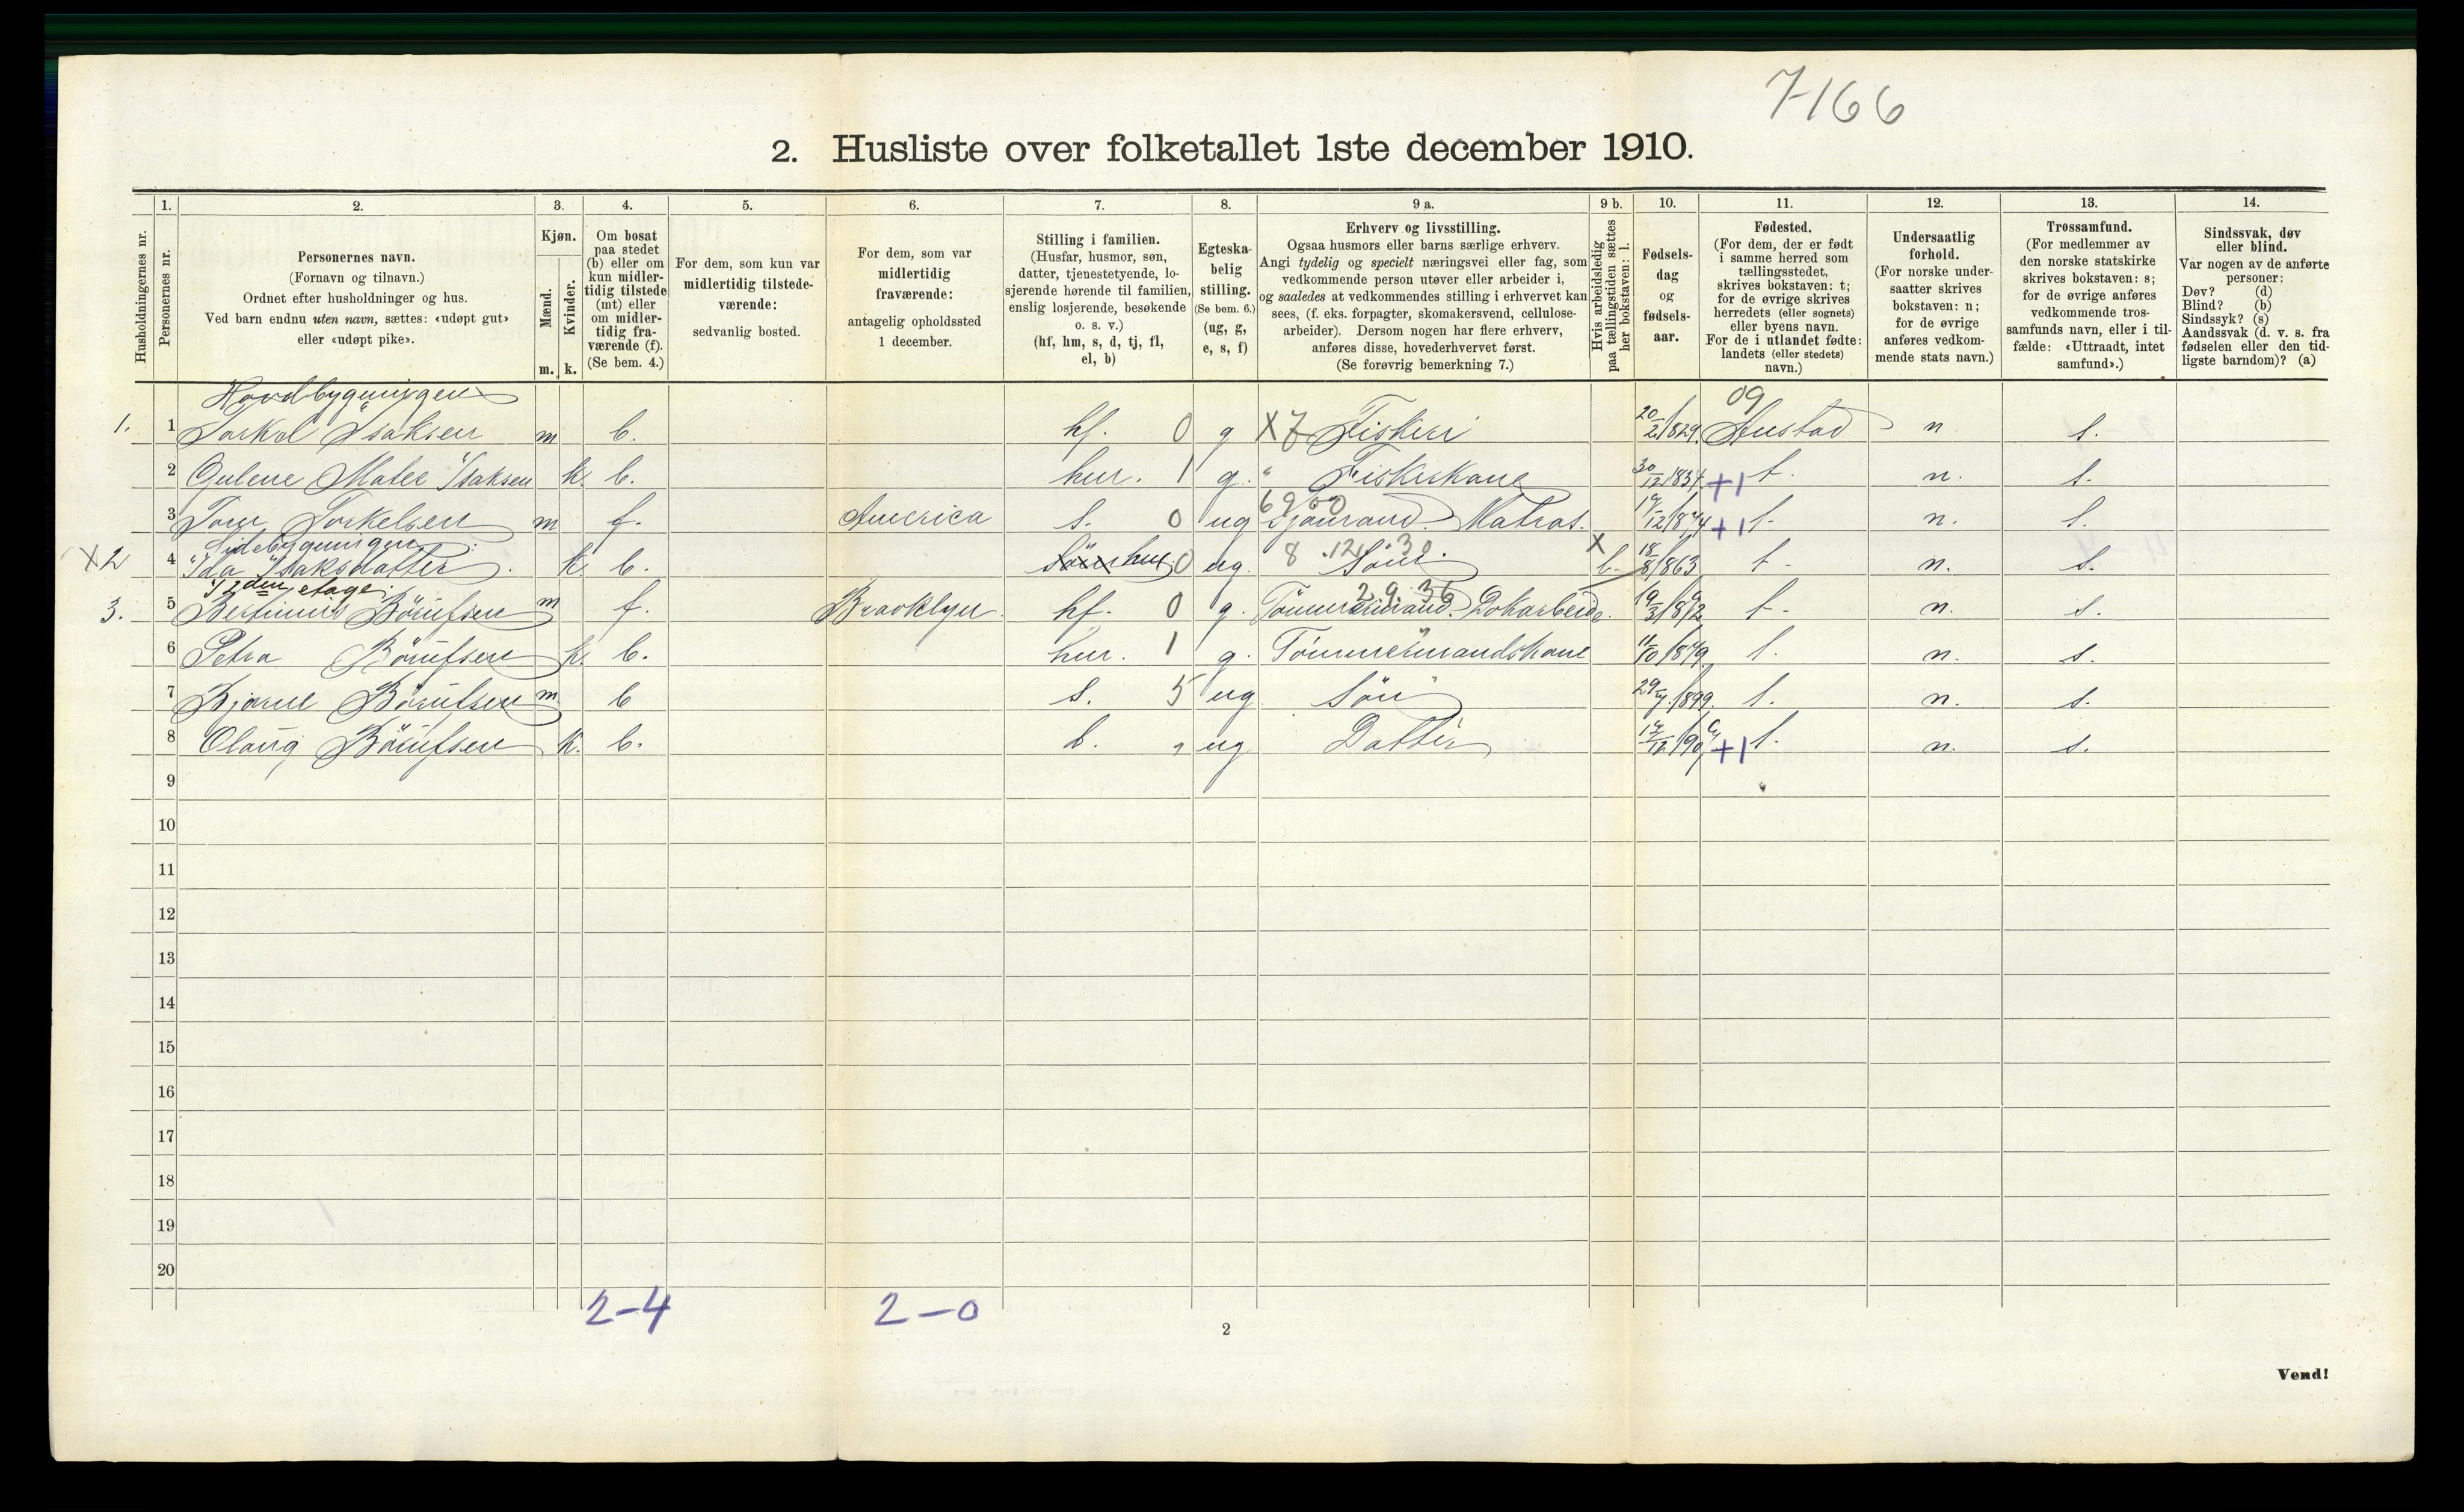 7-166
2. Husliste over folketallet 1ste december 1910.
Husholdningernes nr.
1.
Personernes nr.
2.
Personernes navn.
(Fornavn og tilnavn.)
Ordnet efter husholdninger og hus.
Ved barn endnu uten navn, sættes: «udøpt gut»
eller «udøpt pike».
3.
Kjøn.
Mænd.
Kvinder.
m. k.
4.
Om bosat
paa stedet
(b) eller om
kun midler-
tidig tilstede
(mt) eller
om midler-
tidig fra-
værende (f).
(Se bem. 4.)
5.
For dem, som kun var
midlertidig tilstede-
værende:
sedvanlig bosted.
6.
For dem, som var
midlertidig
fraværende:
antagelig opholdssted
1 december.
7.
Stilling i familien.
(Husfar, husmor, søn,
datter, tjenestetyende, lo-
sjerende hørende til familien,
enslig losjerende, besøkende
o. s. v.)
(hf, hm, s, d, tj, fl,
el, b)
8.
Egteska-
belig
stilling.
(Se bem. 6.)
(ug, g,
e, s, f)
9 a.
Erhverv og livsstilling.
Ogsaa husmors eller barns særlige erhverv.
Angi tydelig og specielt næringsvei eller fag, som
vedkommende person utøver eller arbeider i,
og saaledes at vedkommendes stilling i erhvervet kan
sees, (f. eks. forpagter, skomakersvend, cellulose-
arbeider). Dersom nogen har flere erhverv,
anføres disse, hovederhvervet først.
(Se forøvrig bemerkning 7.)
9 b.
Hvis arbeidsledig
paa tællingstiden sættes
her bokstaven: l.
10.
Fødsels-
dag
og
fødsels-
aar.
11.
Fødested.
(For dem, der er født
i samme herred som
tællingsstedet,
skrives bokstaven: t;
for de øvrige skrives
herredets (eller sognets)
eller byens navn.
For de i utlandet fødte:
landets (eller stedets)
navn.)
12.
Undersaatlig
forhold.
(For norske under-
saatter skrives
bokstaven: n;
for de øvrige
anføres vedkom-
mende stats navn.)
13.
Trossamfund.
(For medlemmer av
den norske statskirke
skrives bokstaven: s;
for de øvrige anføres
vedkommende tros-
samfunds navn, eller i til-
fælde: «Uttraadt, intet
samfund».)
14.
Sindssvak, døv
eller blind.
Var nogen av de anførte
personer:
Døv? (d)
Blind? (b)
Sindssyk? (s)
Aandssvak (d. v. s. fra
fødselen eller den tid-
ligste barndom)? (a)
Hovdbygningen 09
1. 1 Torkel Isaksen m b. hf. 0 g X7 Fiskeri 20/2 1829 Austad n s.
2 Gulene Malee Isaksen k. b. hur. 1 g. " Fiskekone 30/12 183 +1 t. n. s.
6960
3 Tom Torkelsen m f. America s. 0 ug Sjømand. Matros. 12/18 +1 t. n. s.
Sidebygningen
X2 4 Ida Isaksdatter k b. hur. 0 ug. 8 .12. 30. X l. 18/8 1863 t - n. s.
I 2den etage 29.36
3. 5 Bertinius Börufsen m f. Brooklyn hf. 0 g. Tömmermand. Dokarbeid. 19/3 1872 t - n. s.
6 Petra Börufsen k. b. hur. 1 g. Tömmermandskone 11/10 1879 t. n. s.
7 Bjarne Börufsen m b s. 5 ug Sön 29/7 1899 t. n. s.
8 Olaug Börufsen k. b. ug Datter /12 190 +1 t. n. s.
9
10
11
12
13
14
15
16
17
18
19
20
2-4 2-0
2
Vend!